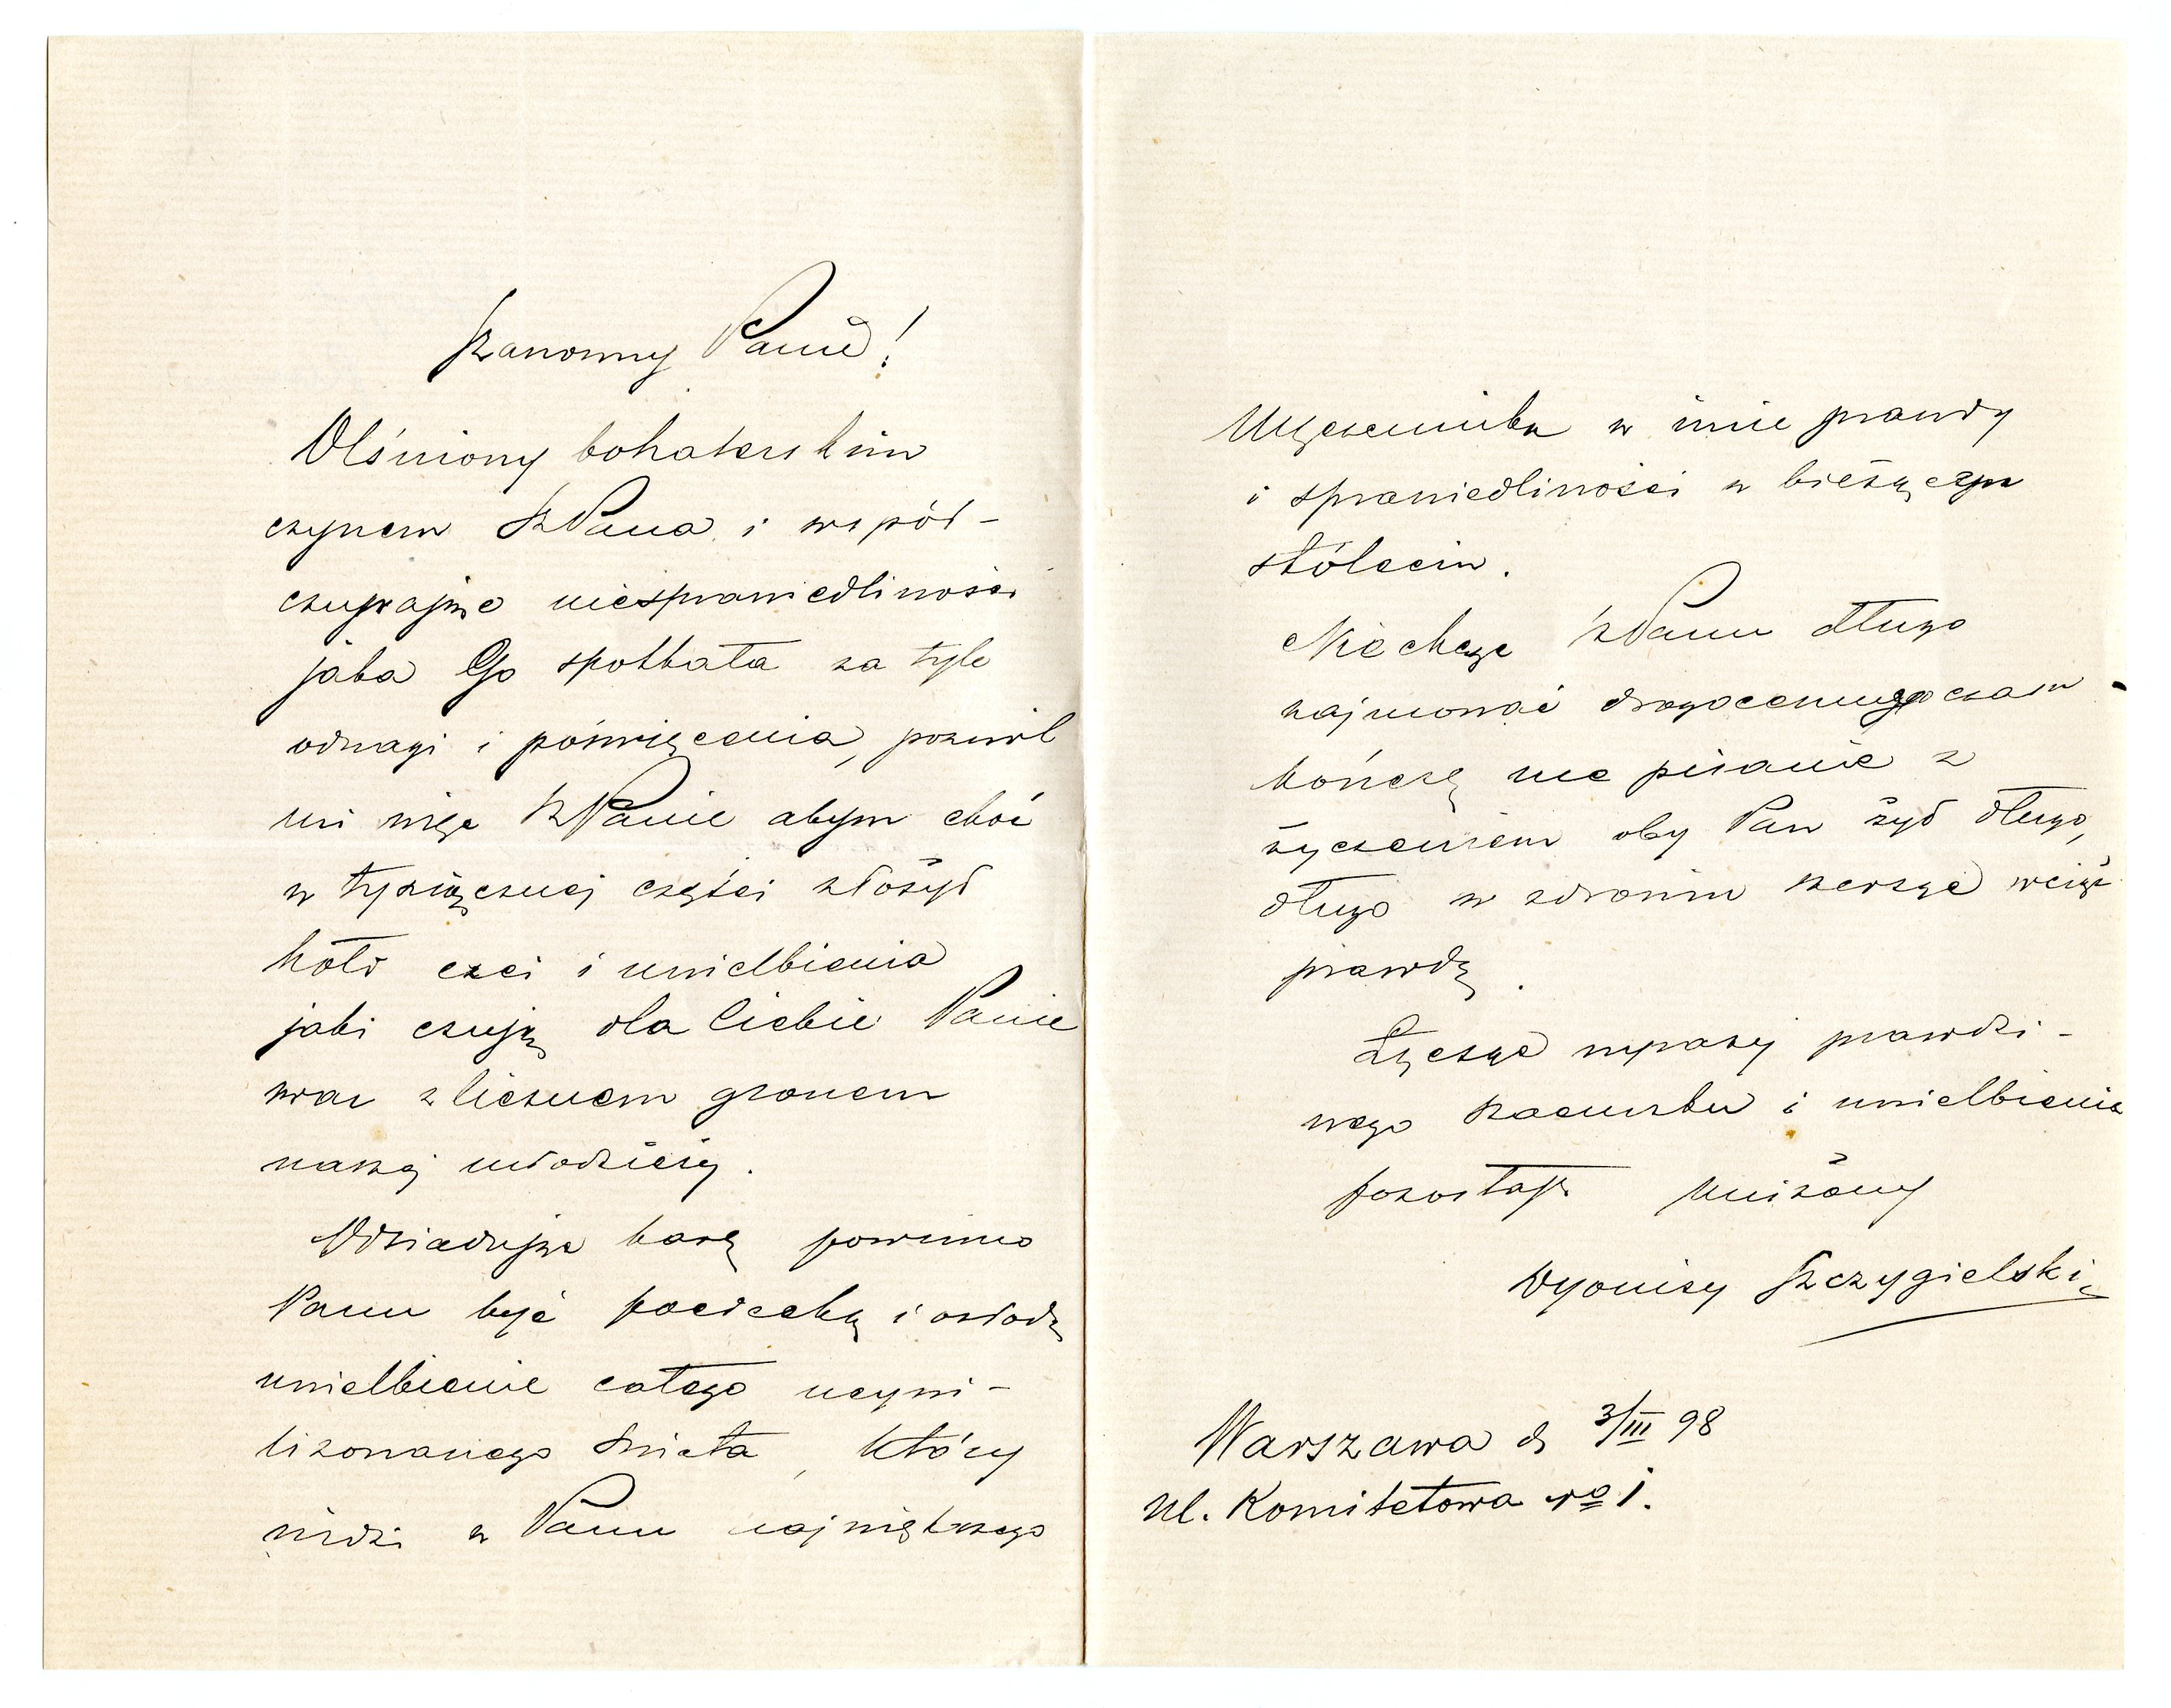 Szanowny Panie!
Olśniony bohaterskim
czynem SzPana i współ-
czującʼ niesprawiedliwości
jaka Go spotkała za tyle
odwagi i poświęcenia, pozwól
mi więc SzPanie abym choć
w tysiącznej części złożył
hołd czci i uwielbienia
jaki czuję dla Ciebie Panie
wraz z licznem gronem
naszej młodzieży.
Odsiadując karę powinno
Panu być pociechą i osłodą
uwielbienie całego ucywi-
lizowanego świata, który
widzi w Panu największego
Męczennika w imie prawdy
i sprawiedliwości w bieżączym
stóleciu.
Nie chcąc SzPanu długo
zajmować drogocennego czasu
kończę me pisanie z
życzeniem oby Pan żył długo,
długo w zdrowiu szerząc wciąż
prawdę.
Łącząc wyrazy prawdzi-
wego szacunku i uwielbienia
pozostaję uniżony
Dyonizy Szczygielski
Warszawa d 3/III 98
Ul. Komitetowa No 1.